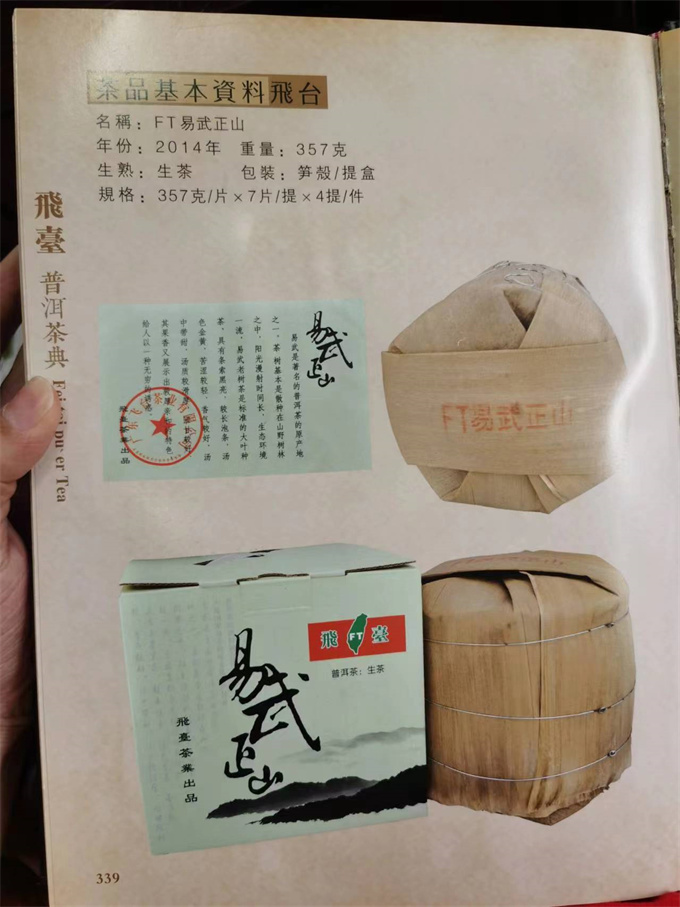 茶品基本資料飛台
名稱：FT易武正山
年份：2014年 重量：357克
生熟：生茶 包裝：笋殼/提盒
規格：357克/片×7片/提×4提/件
飛臺 普洱茶典
er Tea
易武正山
易武是著名的普洱茶的原产地
之一，茶树基本是散种在山野树林
之中，阳光漫射时间长，生态环境
一流，易武老树茶是标准的大叶种
茶，具有条索黑亮，较长泡条，汤
色金黄，苦涩较轻，香气较好，汤
中带甜，汤质较滑
其果香又展示出
给人以一种无穷的
飛臺茶業出品
FT易武正山
飛 FT 臺
普洱茶：生茶
易武正山
飛臺茶業出品
339